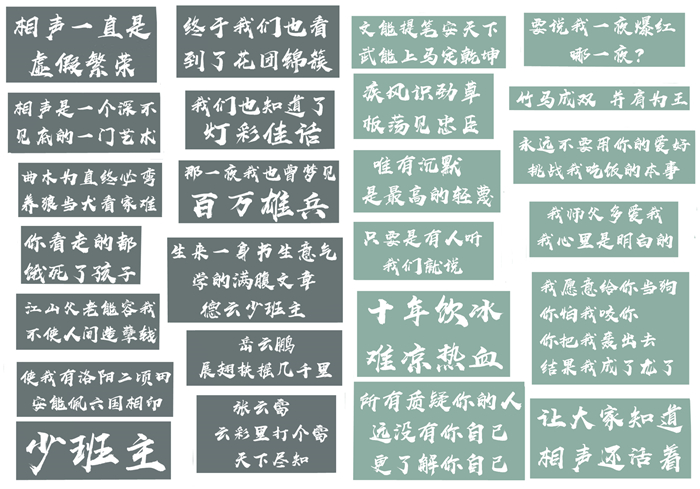 相声一直是
虚假繁荣
相声是一个深不
见底的一门艺术
曲木为直终必弯
养狼当犬看家难
你看走的都
饿死了孩子
江山父老能容我
不使人间造孽钱
使我有洛阳二顷田
安能佩六国相印
少班主
终于我们也看
到了花团锦簇
我们也知道了
灯彩佳话
那一夜我也曾梦见
百万雄兵
生来一身书生意气
学的满腹文章
德云少班主
岳云鹏
展翅扶摇几千里
张云雷
云彩里打个雷
天下尽知
文能提笔安天下
武能上马定乾坤
疾风识劲草
板荡见忠臣
唯有沉默
是最高的轻蔑
只要是有人听
我们就说
十年饮冰
难凉热血
所有质疑你的人
远没有你自己
更了解你自己
要说我一夜爆红
哪一夜?
竹马成双 并肩为王
永远不要用你的爱好
挑战我吃饭的本事
我师父多爱我
我心里是明白的
我愿意给你当狗
你怕我咬你
你把我轰出去
结果我成了龙了
让大家知道
相声还活着